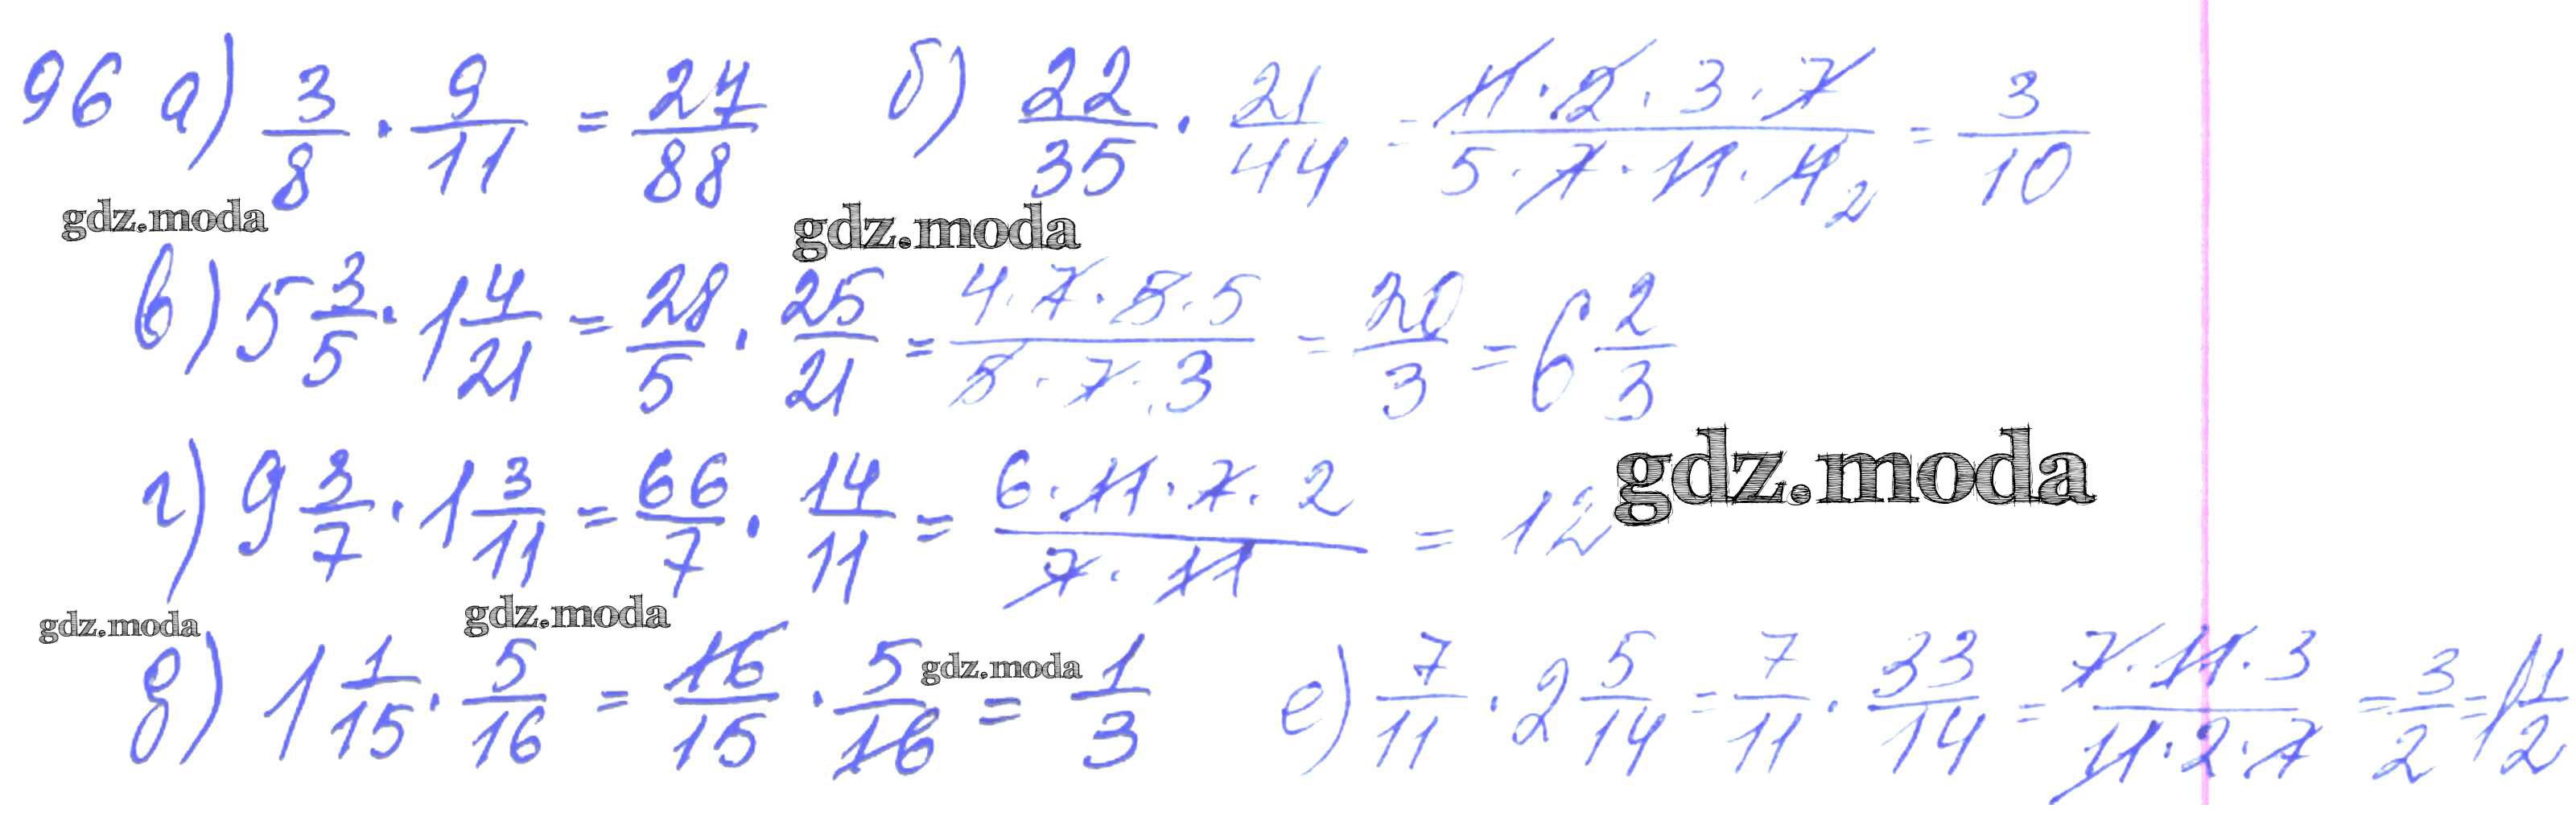 96 а) 3/8 · 9/11 = 27/88 б) 22/35 · 21/44 = 11·2·3·7/5·7·11·4 2 = 3/10
gdz.moda gdz.moda
в) 5 3/5 · 1 4/21 = 28/5 · 25/21 = 4·7·5·5/5·7·3 = 20/3 = 6 2/3
г) 9 3/7 · 1 3/11 = 66/7 · 14/11 = 6·11·7·2/7·11 = 12 gdz.moda
gdz.moda gdz.moda
д) 1 1/15 · 5/16 = 16/15 · 5/16 gdz.moda = 1/3 е) 7/11 · 2 5/14 = 7/11 · 33/14 = 7·11·3/11·2·7 = 3/2 = 1 1/2